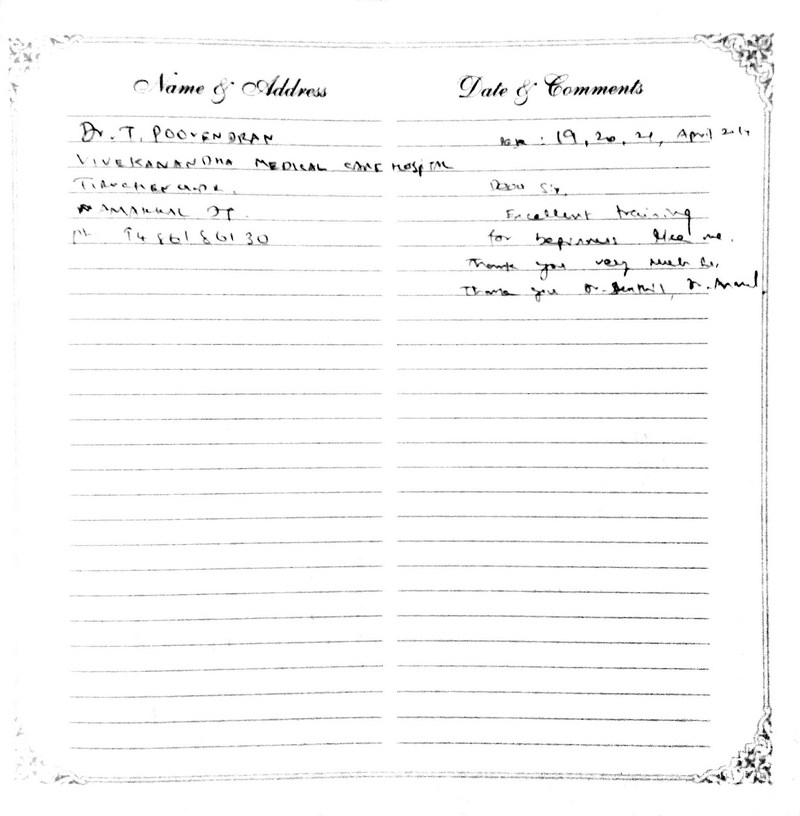 Name & Address
Dr. T. POOVENDRAN
VIVEKANANDHA MEDICAL CARE HOSPITAL
TIRUCHENGODE.
NAMAKKAL DT.
Ph 9486186130
Date & Comments
Date : 19, 20, 21, April
Dear Sir,
Excellent training
for beginners like me.
Thank you very much Sir,
Thank you Dr. Senthil, Dr.